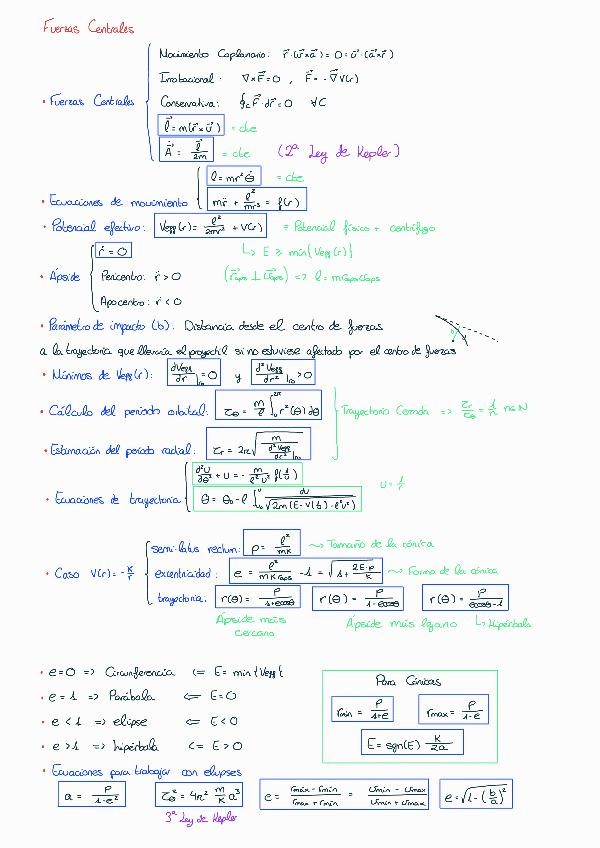 Fuerzas Centrales
Movimiento Coplanario: r⃗·(ω⃗×a⃗) = 0 = ω⃗·(a⃗×r⃗)
Irrotacional: ∇×F⃗=0 , F⃗ = -∇⃗V(r)
• Fuerzas Centrales
Conservativa: ∮c F⃗·dr⃗ = 0 ∀C
l⃗ = m(r⃗×v⃗) = cte
A⃗̇ = l⃗/2m = cte (2ª Ley de Kepler)
l = mr²θ̇ = cte
• Ecuaciones de movimiento
mr̈ + l²/mr³ = f(r)
• Potencial efectivo: Veff(r) = l²/2mr² + V(r) = Potencial físico + centrífugo
ṙ = 0 ↳ E ≥ min{Veff(r)}
• Ápside Pericentro: r̈ > 0 (r⃗aps ⊥ v⃗aps) => l = m raps vaps
Apocentro: r̈ < 0
• Parámetro de impacto (b): Distancia desde el centro de fuerzas
a la trayectoria que llevaría el proyectil si no estuviese afectado por el centro de fuerzas
• Mínimos de Veff(r): dVeff/dr |r₀ = 0 y d²Veff/dr² |r₀ > 0
• Cálculo del periodo orbital: τθ = m/l ∫₀^2π r²(θ) dθ
Trayectoria Cerrada => τr/τθ = 1/n n∈N
• Estimación del periodo radial: τr = 2π √(m / (d²Veff/dr² |r₀))
d²u/dθ² + u = - m/l²u² f(1/u)
u = 1/r
• Ecuaciones de trayectoria θ = θ₀ - l ∫ du/√(2m(E-V(1/u)) - l²u²)
semi-latus rectum: p = l²/mK ~> Tamaño de la cónica
• Caso V(r) = -K/r excentricidad: e = l²/mK raps - 1 = √(1 + 2E·p/K) ~> Forma de la cónica
trayectoria: r(θ) = p/1+ecosθ r(θ) = p/1-ecosθ r(θ) = p/ecosθ-1
Ápside más cercano Ápside más lejano ↳ Hipérbola
• e=0 => Circunferencia <= E = min{Veff}
• e = 1 => Parábola <= E=0
• e < 1 => elipse <= E<0
• e > 1 => hipérbola <= E>0
Para Cónicas
rmin = p/1+e rmax = p/1-e
E = sgn(E) K/2a
• Ecuaciones para trabajar con elipses
a = p/1-e² τθ² = 4π² m/K a³ e = rmax - rmin/rmax + rmin = vmax - vmin/vmin + vmax e = √(1-(b/a)²)
3ª Ley de Kepler